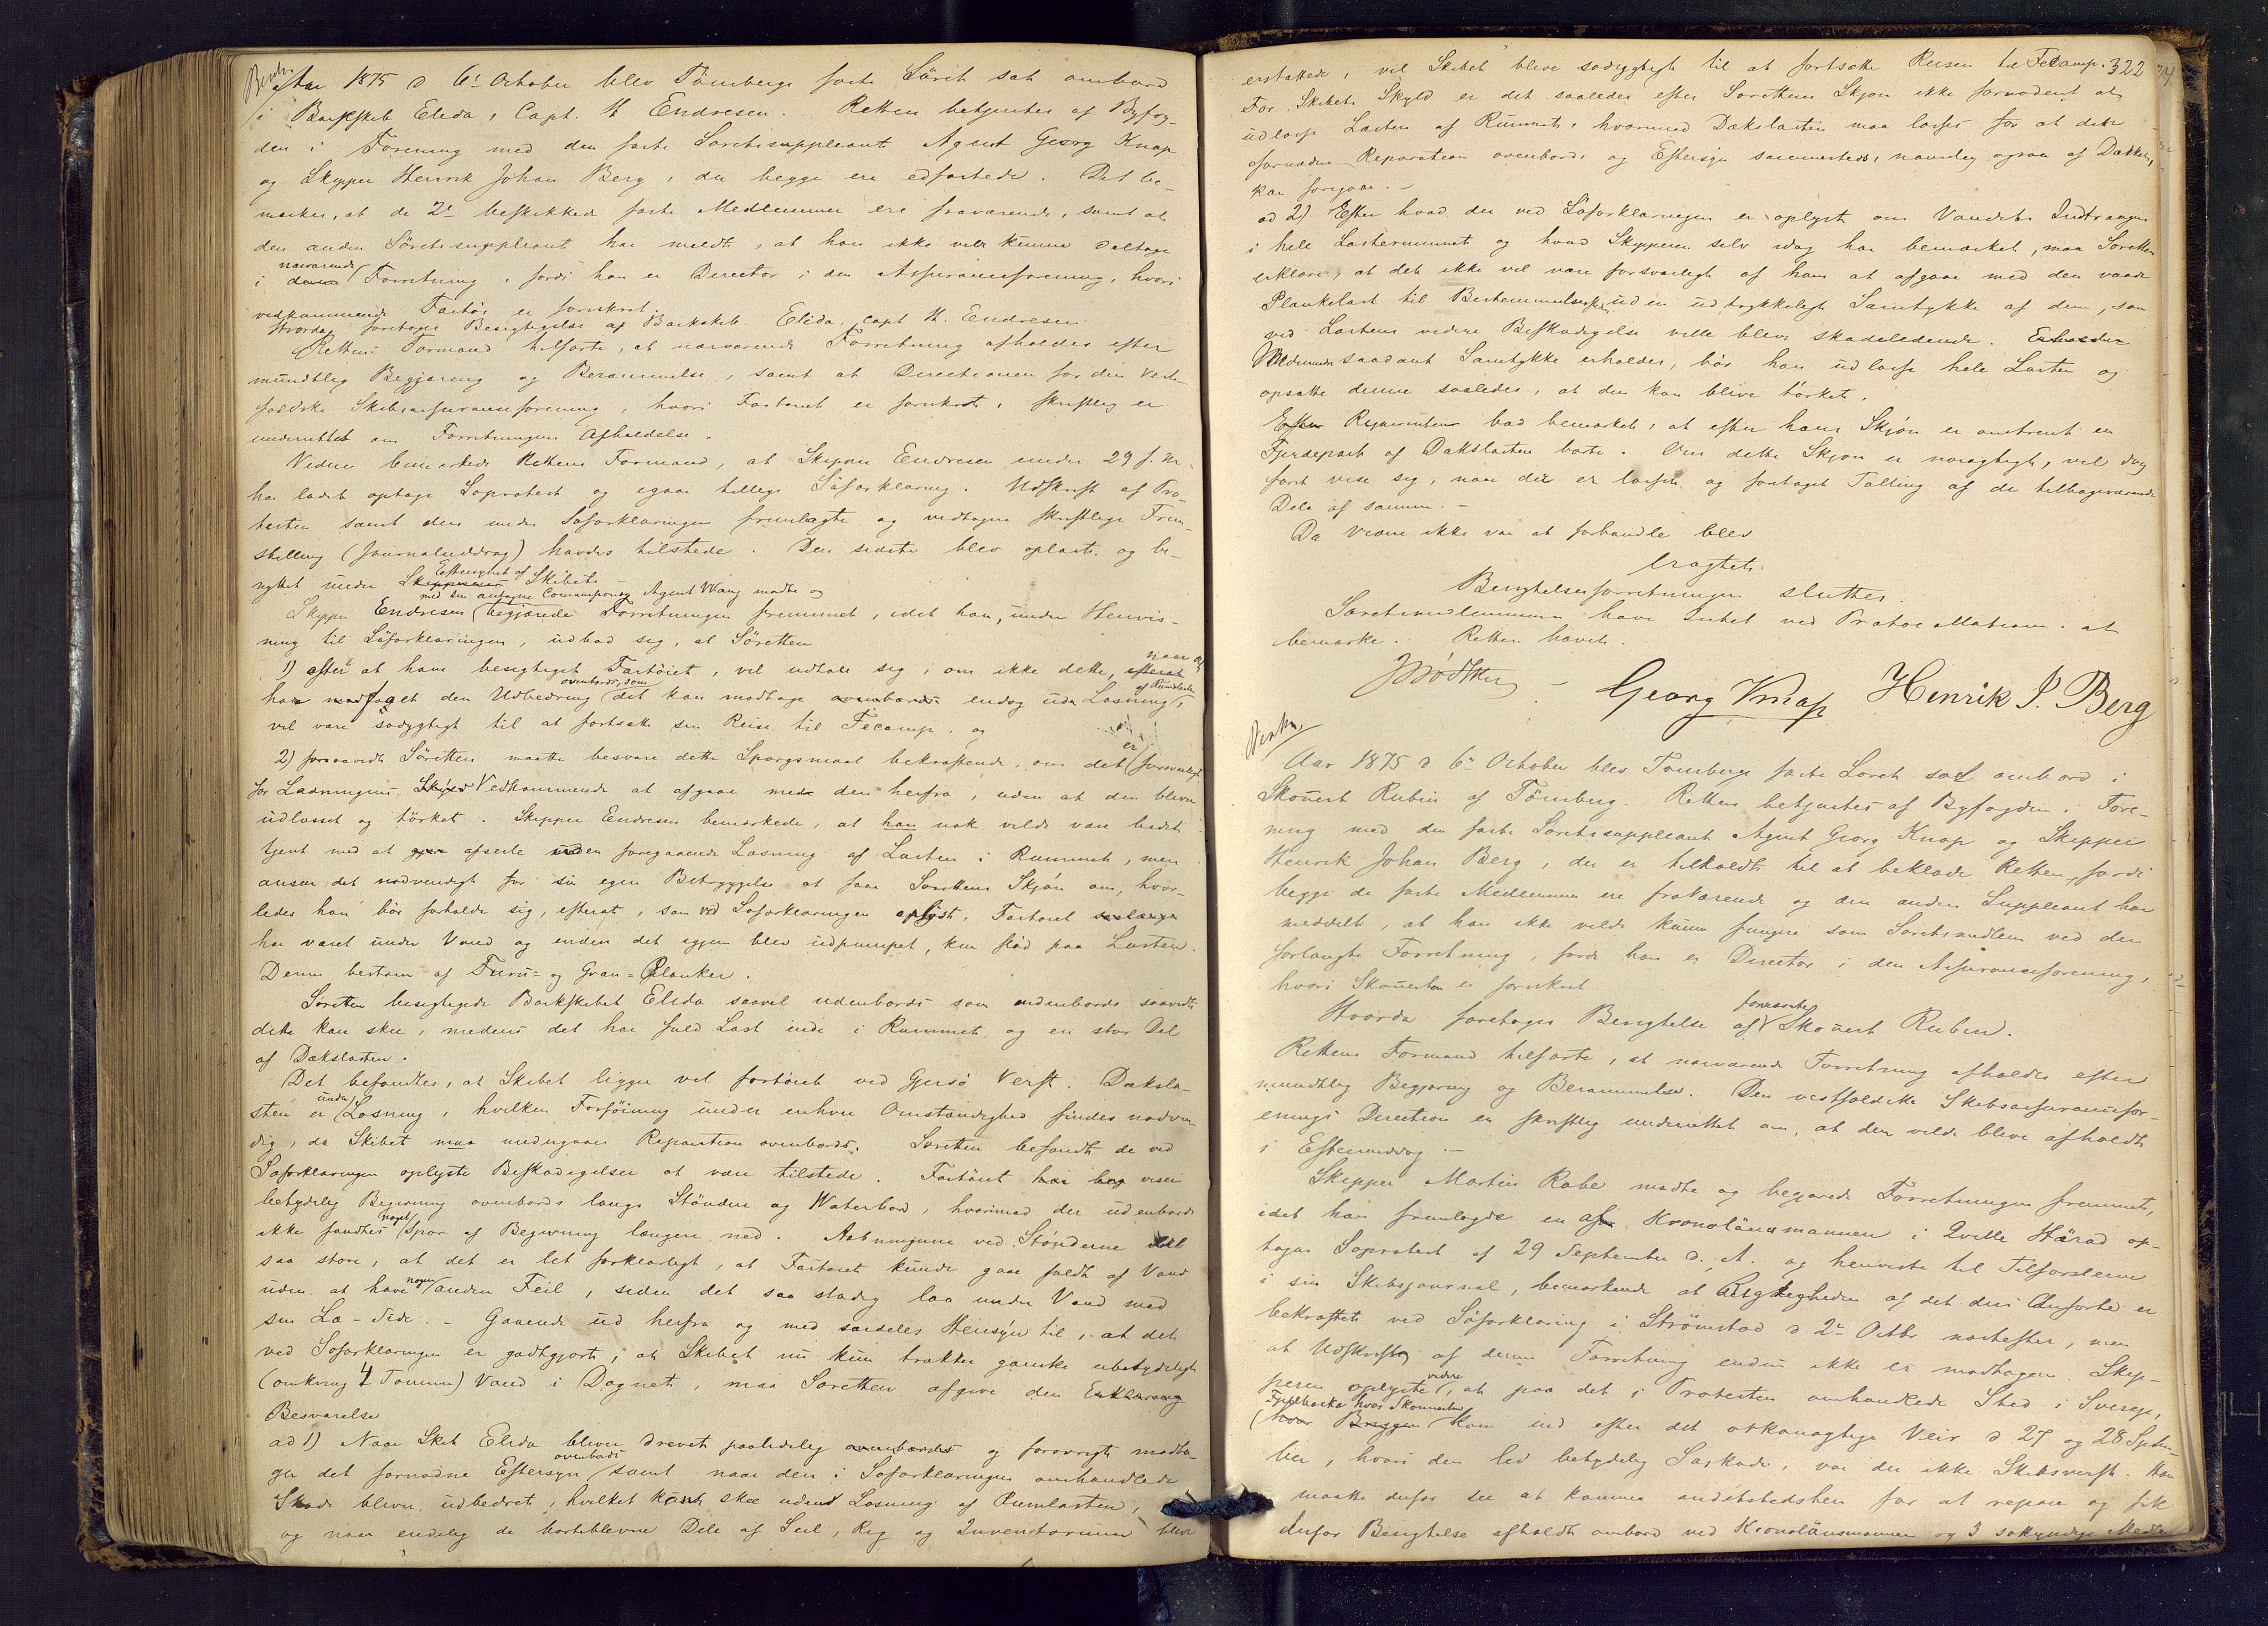 Aar 1875 d 6te October blev Tönsbergs faste Söret sat ombord
i Barkskib Elida, Capt. H Endresen. Retten betjentes af Byfog-
den i Forening med den faste Soretssuppleant Agent Georg Knap
og Skipper Henrik Johan Berg, der begge ere edfæstede. Det be-
mærkes, at de 2de beskikkede faste Medlemmer ere fraværende, samt at
den anden Söretssuppleant har meldt, at han ikke vil kunne deltage
i nærværende Forretning, fordi han er Director i den Assuranceforening, hvori
vedkommende Fartöi er forsikret.
Hvorda foretoges Besigtigelse af Barkskib Elida, capt H. Endresen
Rettens Formand tilförte, at nærværende Forretning afholdes efter
mundtlig Begjæring og Berammelse, samt at Directionen for den Vest-
foldske Skibsassuranceforening, hvori Fartöiet er forsikret, skriftlig er
underrettet om Forretningens Afholdelse.
Videre bemærkede Rettens Formand, at Skipper Endresen under 29 f. M.
har ladet optage Söprotest og igaar tillige Söforklaring. Udskrift af Pro-
testen samt den under Söforklaringen fremlagte og vedtagne skriftlige Frem-
stilling (Journaluddrag) havdes tilstede. Den sidste blev oplæst og be-
nyttet under Eftersynet af Skibet.
Skipper Endresen med sin antagne Commissionær Agent Wang mødte og begjærede Forretningen fremmet, idet han, under Henvis-
ning til Söforklaringen, udbad sig, at Söretten
1) efter at have besigtiget Fartöiet, vil udtale sig, om ikke dette, naar det
har modtaget den Udbedring ovenbords, som det kan modtage endog uden Losning af Rumlasten,
vil være södygtigt til at fortsætte sin Reise til Fécamp, og
2) forsaavidt Söretten maatte besvare dette Spørgsmaal bekræftende, om det er forsvarligt
for Ladningens Vedkommende at afgaae med den herfra, uden at den bliver
udlosset og törket. Skipper Endresen bemærkede, at han nok vilde være bedst
tjent med at afseile uden foregaaende Losning af Lasten i Rummet, men
anser det nødvendigt for sin egen Betryggelse at faae Sørettens Skjön om, hvor-
ledes han bör forholde sig, efterat, som ved Söforklaringen oplyst, Fartöiet
har været under Vand og inden det igjen blev udpumpet, kun flöd paa Lasten.
Denne bestaar af Furu- og Gran-Planker.
Söretten besigtigede Barkskibet Elida saavel udenbords som indenbords saavidt
dette kan skee, medens det har fuld Last inde i Rummet og en stor Del
af Dækslasten.
Det befandtes, at Skibet ligger vel fortöiet ved Gjersö Verft. Daeksla-
sten er under Losning, hvilken Forföining under enhver Omstændighed findes nødven
dig, da Skibet maa undergaae Reparation ovenbords. Søretten befandt de ved
Søforklaringen oplyste Beskadigelser at være tilstede. Fartöiet viser
betydelig Begivning ovenbords langs Støndere og Waterbord, hvorimod der udenbords
ikke fandtes noget Spor af Begivning længere ned. Aabningerne ved Stönderne
saa store, at det er let forklarligt, at Fartöiet kunde gaae fuldt af Vand
uden at have nogen anden Feil, siden det saa stadig laa under Vand med
sin Læ-Side. - Gaaende ud herfra og med særdeles Hensyn til, at det
ved Söforklaringen er godtgjort, at Skibet nu kun trækker ganske ubetydeligt
(omkring 4 Tommer) Vand i Dognet, maa Søretten afgive den Erklæring
Besvarelse
ad 1) Naar Skib Elida bliver drevet paalidelig og forøvrigt modta-
ger det fornødne Eftersyn ovenbords samt naar den i Søforklaringen omhandlede
Skade bliver udbedret, hvilket kan skee uden Losning af Rumlasten,
og naar endelig de bortblevne Dele af Seil, Rig og Inventarium blive
322
erstattede, vil Skibet blive sødygtigt til at fortsætte Reisen til Fécamp.
For Skibets Skyld er det saaledes efter Sørettens Skjøn ikke fornødent at
udlosse Lasten af Rummet, hvorimod Dækslasten maa losses for at den
fornødne Reparation ovenbords og Eftersyn sammesteds, navnlig ogsaa af Dækket,
kan foregaae. -
ad 2) Efter hvad der ved Söforklaringen er oplyst om Vandets Indtrængen
i hele Lasterummet og hvad Skipperen selv idag har bemærket, maa Søretten
erklære, at det ikke vil være forsvarligt af ham at afgaae med den vaade
Plankelast til Bestemmelsesstedet uden udtrykkeligt Samtykke af dem, som
ved Lastens videre Beskadigelse ville blive skadelidende.
Medmindre saadant Samtykke erholdes, bör han udlosse hele Lasten og
opsætte denne saaledes, at den kan blive törket.
Reqvirenten bad bemærket, at efter hans Skjön er omtrent en
Fjerdepart af Dækslasten borte. Om dette Skjøn er nøiagtigt, vil dog
først vise sig, naar der er losset og foretaget Tælling af de tilbageværende
Dele af samme. -
Da videre ikke var at forhandle blev
eragtet:
Besigtelsesforretningen sluttes.
Søretsmedlemmerne have Intet ved Protocollationen at
bemærke. Retten hævet.
JBödtker - Georg Knap Henrik J. Berg
Aar 1875 d 6te October blev Tønsbergs faste Soret sat ombord i
Skonnert Rubin af Tönsberg. Retten betjentes af Byfogden i Fore-
ning med den faste Soretssuppleant Agent Georg Knap og Skipper
Henrik Johan Berg, der er tilkaldt til at beklæde Retten, fordi
begge de faste Medlemmer ere fraværende og den anden Suppleant har
meddelt, at han ikke vilde kunne fungere som Soretsmedlem ved den
forlangte Forretning, fordi han er Director i den Assuranceforening,
hvori Skonnerten er forsikret
Hvorda foretoges Besigtelse af fornævnte Skonnert Rubin.
Rettens Formand tilførte, at nærværende Forretning afholdes efter
mundtlig Begjæring og Berammelse. Den vestfoldske Skibsassurancefor-
enings Direction er skriftlig underrettet om, at den vilde blive afholdt
i Eftermiddag. -
Skipper Martin Rabe mødte og begjærede Forretningen fremmet,
idet han fremlagde en af Kronolänsmannen i Qville Härad op-
tagen Søprotest af 29 September d. A. og henviste til Tilførslerne
i sin Skibsjournal, bemærkende at Rigtigheden af det deri Anførte er
bekræftet ved Söforklaring i Strömstad d 2de Octbr næstefter, men
at Udskrift af denne Forretning endnu ikke er modtagen. Skip-
peren oplyste videre, at paa det i Protesten omhandlede Sted i Sverige,
Fjelbacka hvor Skonnerten kom ind efter det orkanagtige Veir d 27 og 28 Septem-
ber, hvori den led betydelig Søskade, var der ikke Skibsverft. Han
maatte derfor see at komme andetstedshen for at repare og fik
derfor Besigtelse afholdt ombord ved Kronolänsmannen og 3 søkyndige Mænd